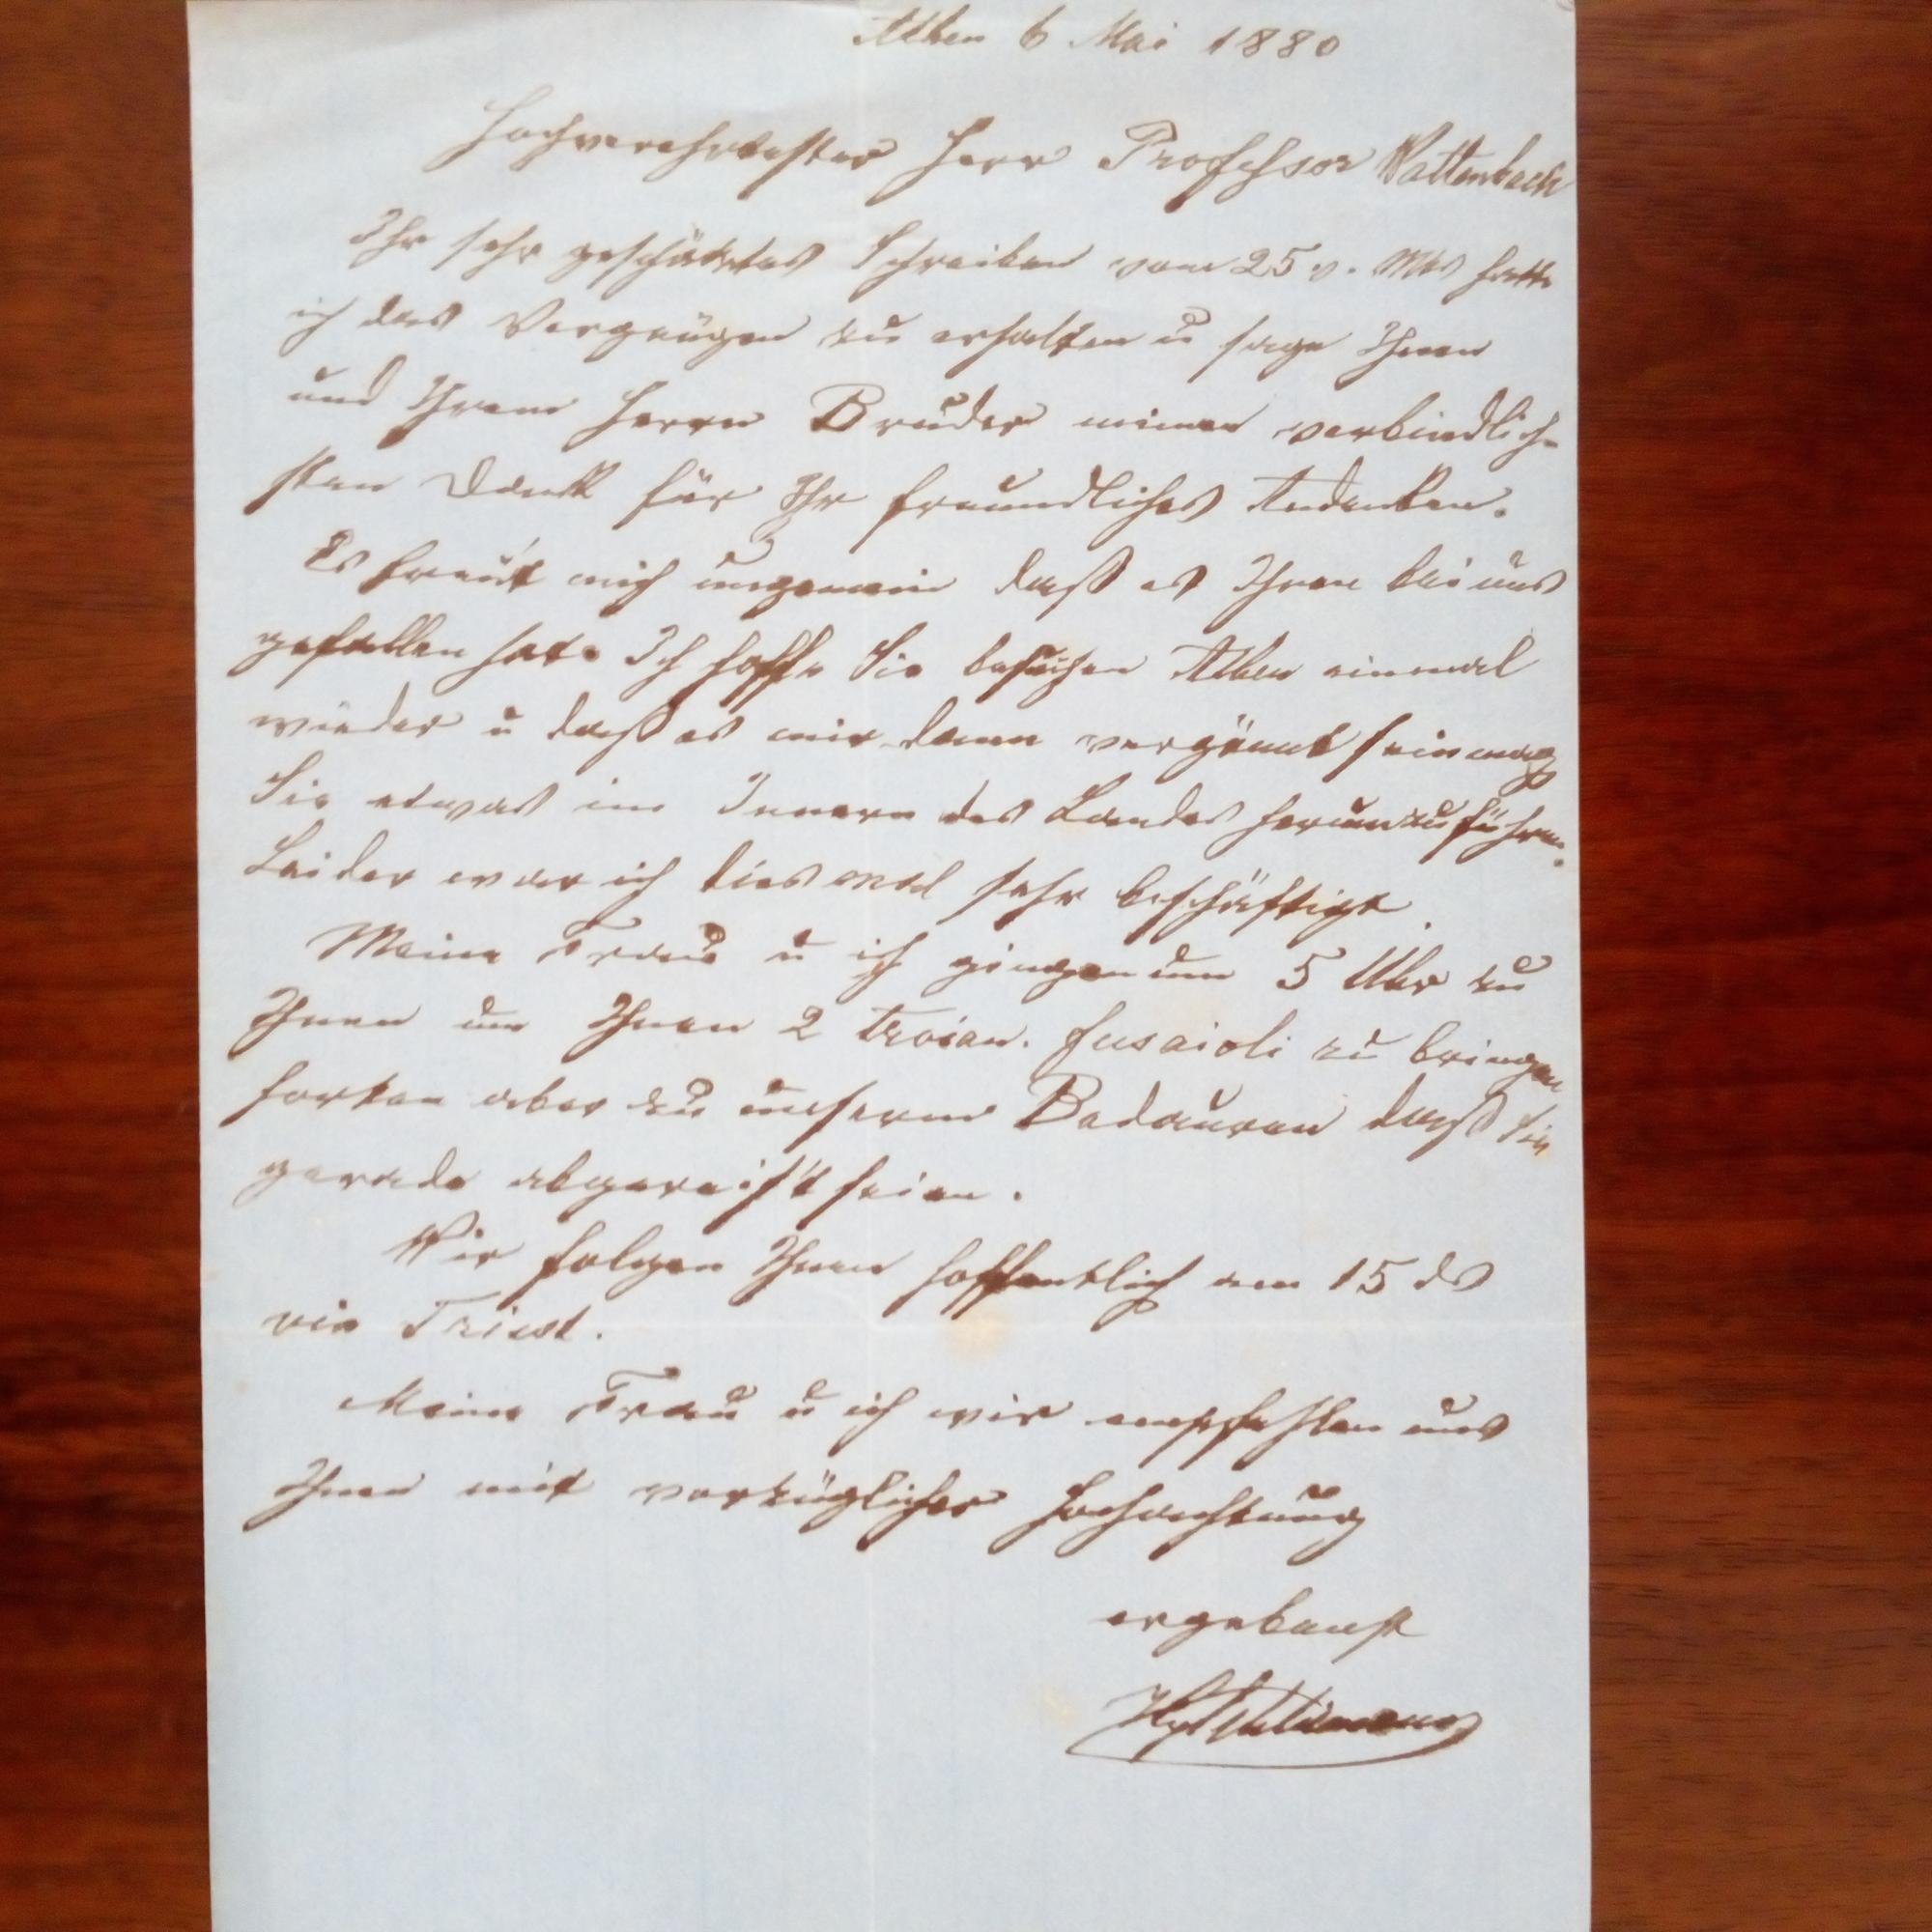 Athen 6 Mai 1880
Hochverehrtester Herr Professor Wattenbach
Ihr sehr geschätztes Schreiben vom 25 v. Mts hatte
ich das Vergnügen zu erhalten u sage Ihnen
und Ihrem Herrn Bruder meinen verbindlich-
sten Dank für Ihr freundliches Andenken.
Es freut mich ungemein daß es Ihnen bei uns
gefallen hat. Ich hoffe Sie besuchen Athen einmal
wieder u daß es mir dann vergönnt sein mag
Sie etwas im Innern des Landes herumzuführen.
Leider war ich diesmal sehr beschäftigt.
Meine Frau u ich gingen um 5 Uhr zu
Ihnen um Ihnen 2 troian. fusaioli zu bringen
horten aber zu unserm Bedauren daß Sie
gerade abgereis't seien.
Wir folgen Ihnen hoffentlich am 15 ds
via Triest.
Meine Frau u ich wir empfehlen uns
Ihnen mit vorzüglicher Hochachtung
ergebenst
HySchliemann